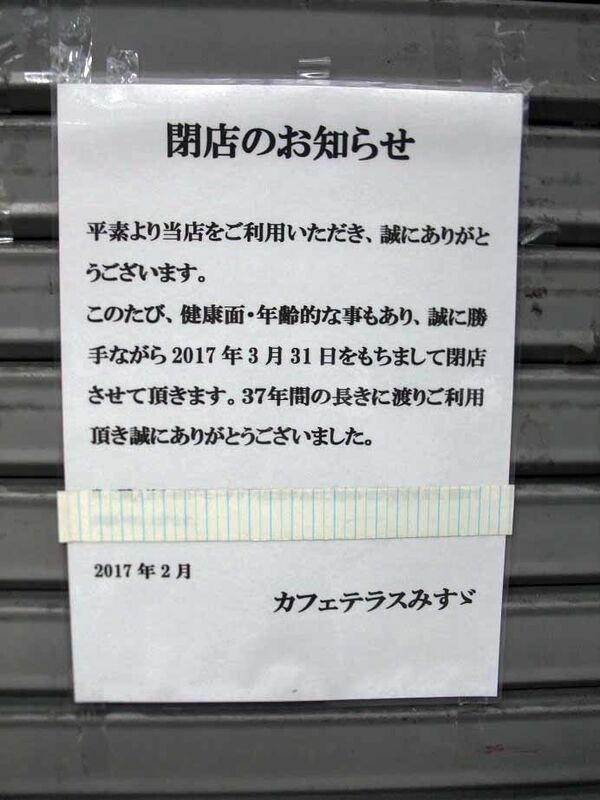 閉店のお知らせ
平素より当店をご利用いただき、誠にありがと
うございます。
このたび、健康面・年齢的な事もあり、誠に勝
手ながら2017年3月31日をもちまして閉店
させて頂きます。37年間の長きに渡りご利用
頂き誠にありがとうございました。
2017年2月
カフェテラスみすゞ